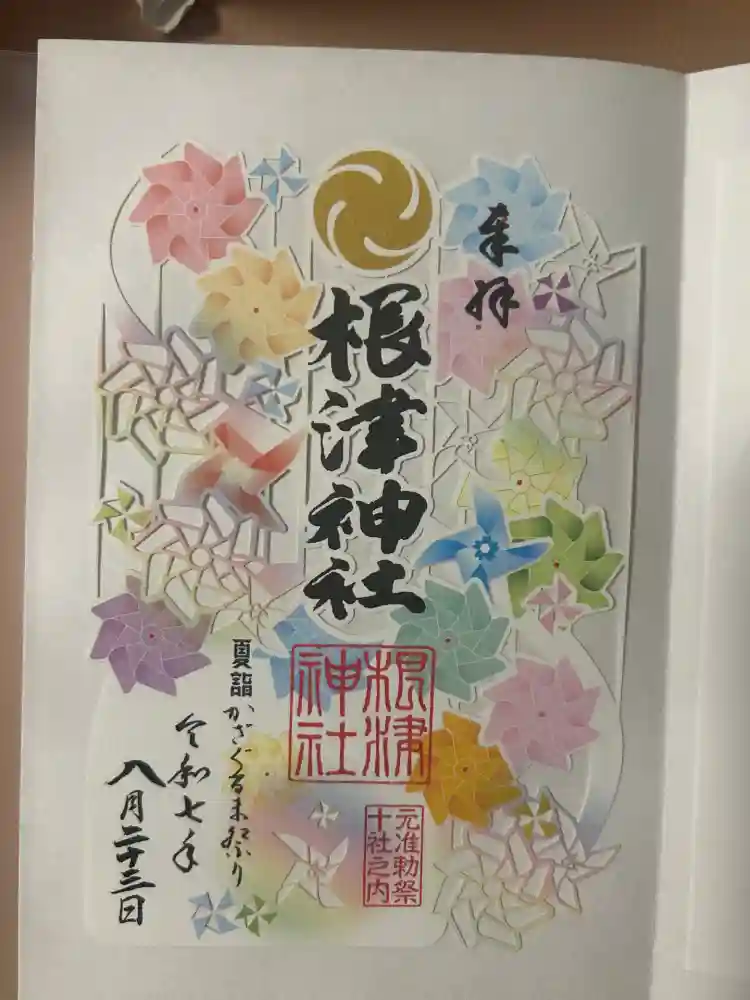 奉拝
根津神社
根津神社
元准勅祭
十社之内
夏詣 かざぐるま祭り
令和七年
八月二十三日